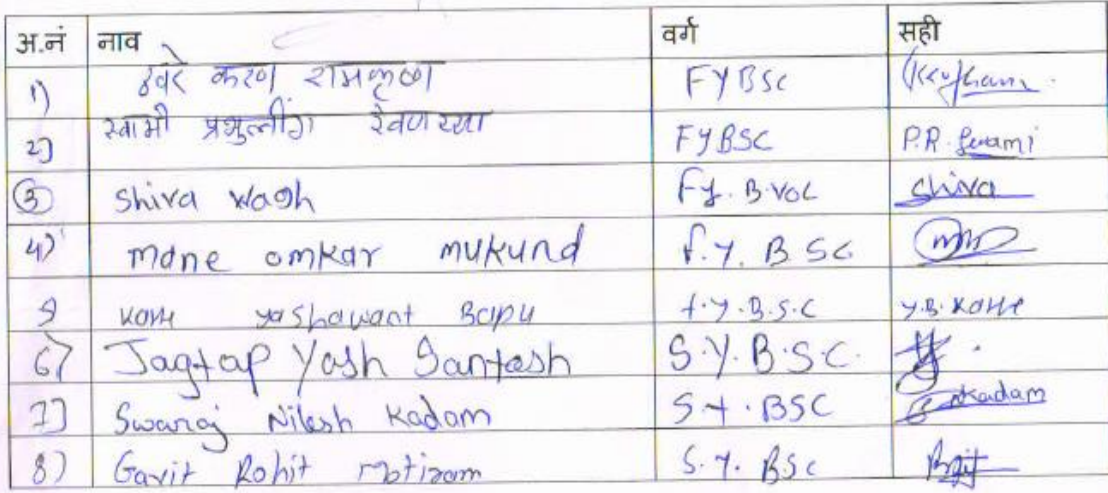 अ.नं नाव वर्ग सही
1) करण रामकृष्ण FYBSC
2) स्वामी प्रभुलींग रेवणय्या FYBSC P.R. Swami
3 Shiva Wagh F.y. B.VOC Shiva
4) mane omkar mukund f.y. B SC
5 yashawant Bapu f.y.B.S.C
6) Jagtap Yash Santosh S.Y.B.S.C.
7) Swaraj Nilesh Kadam S.Y. BSC Kadam
8) Gavit Rohit motiram S.Y. BSC